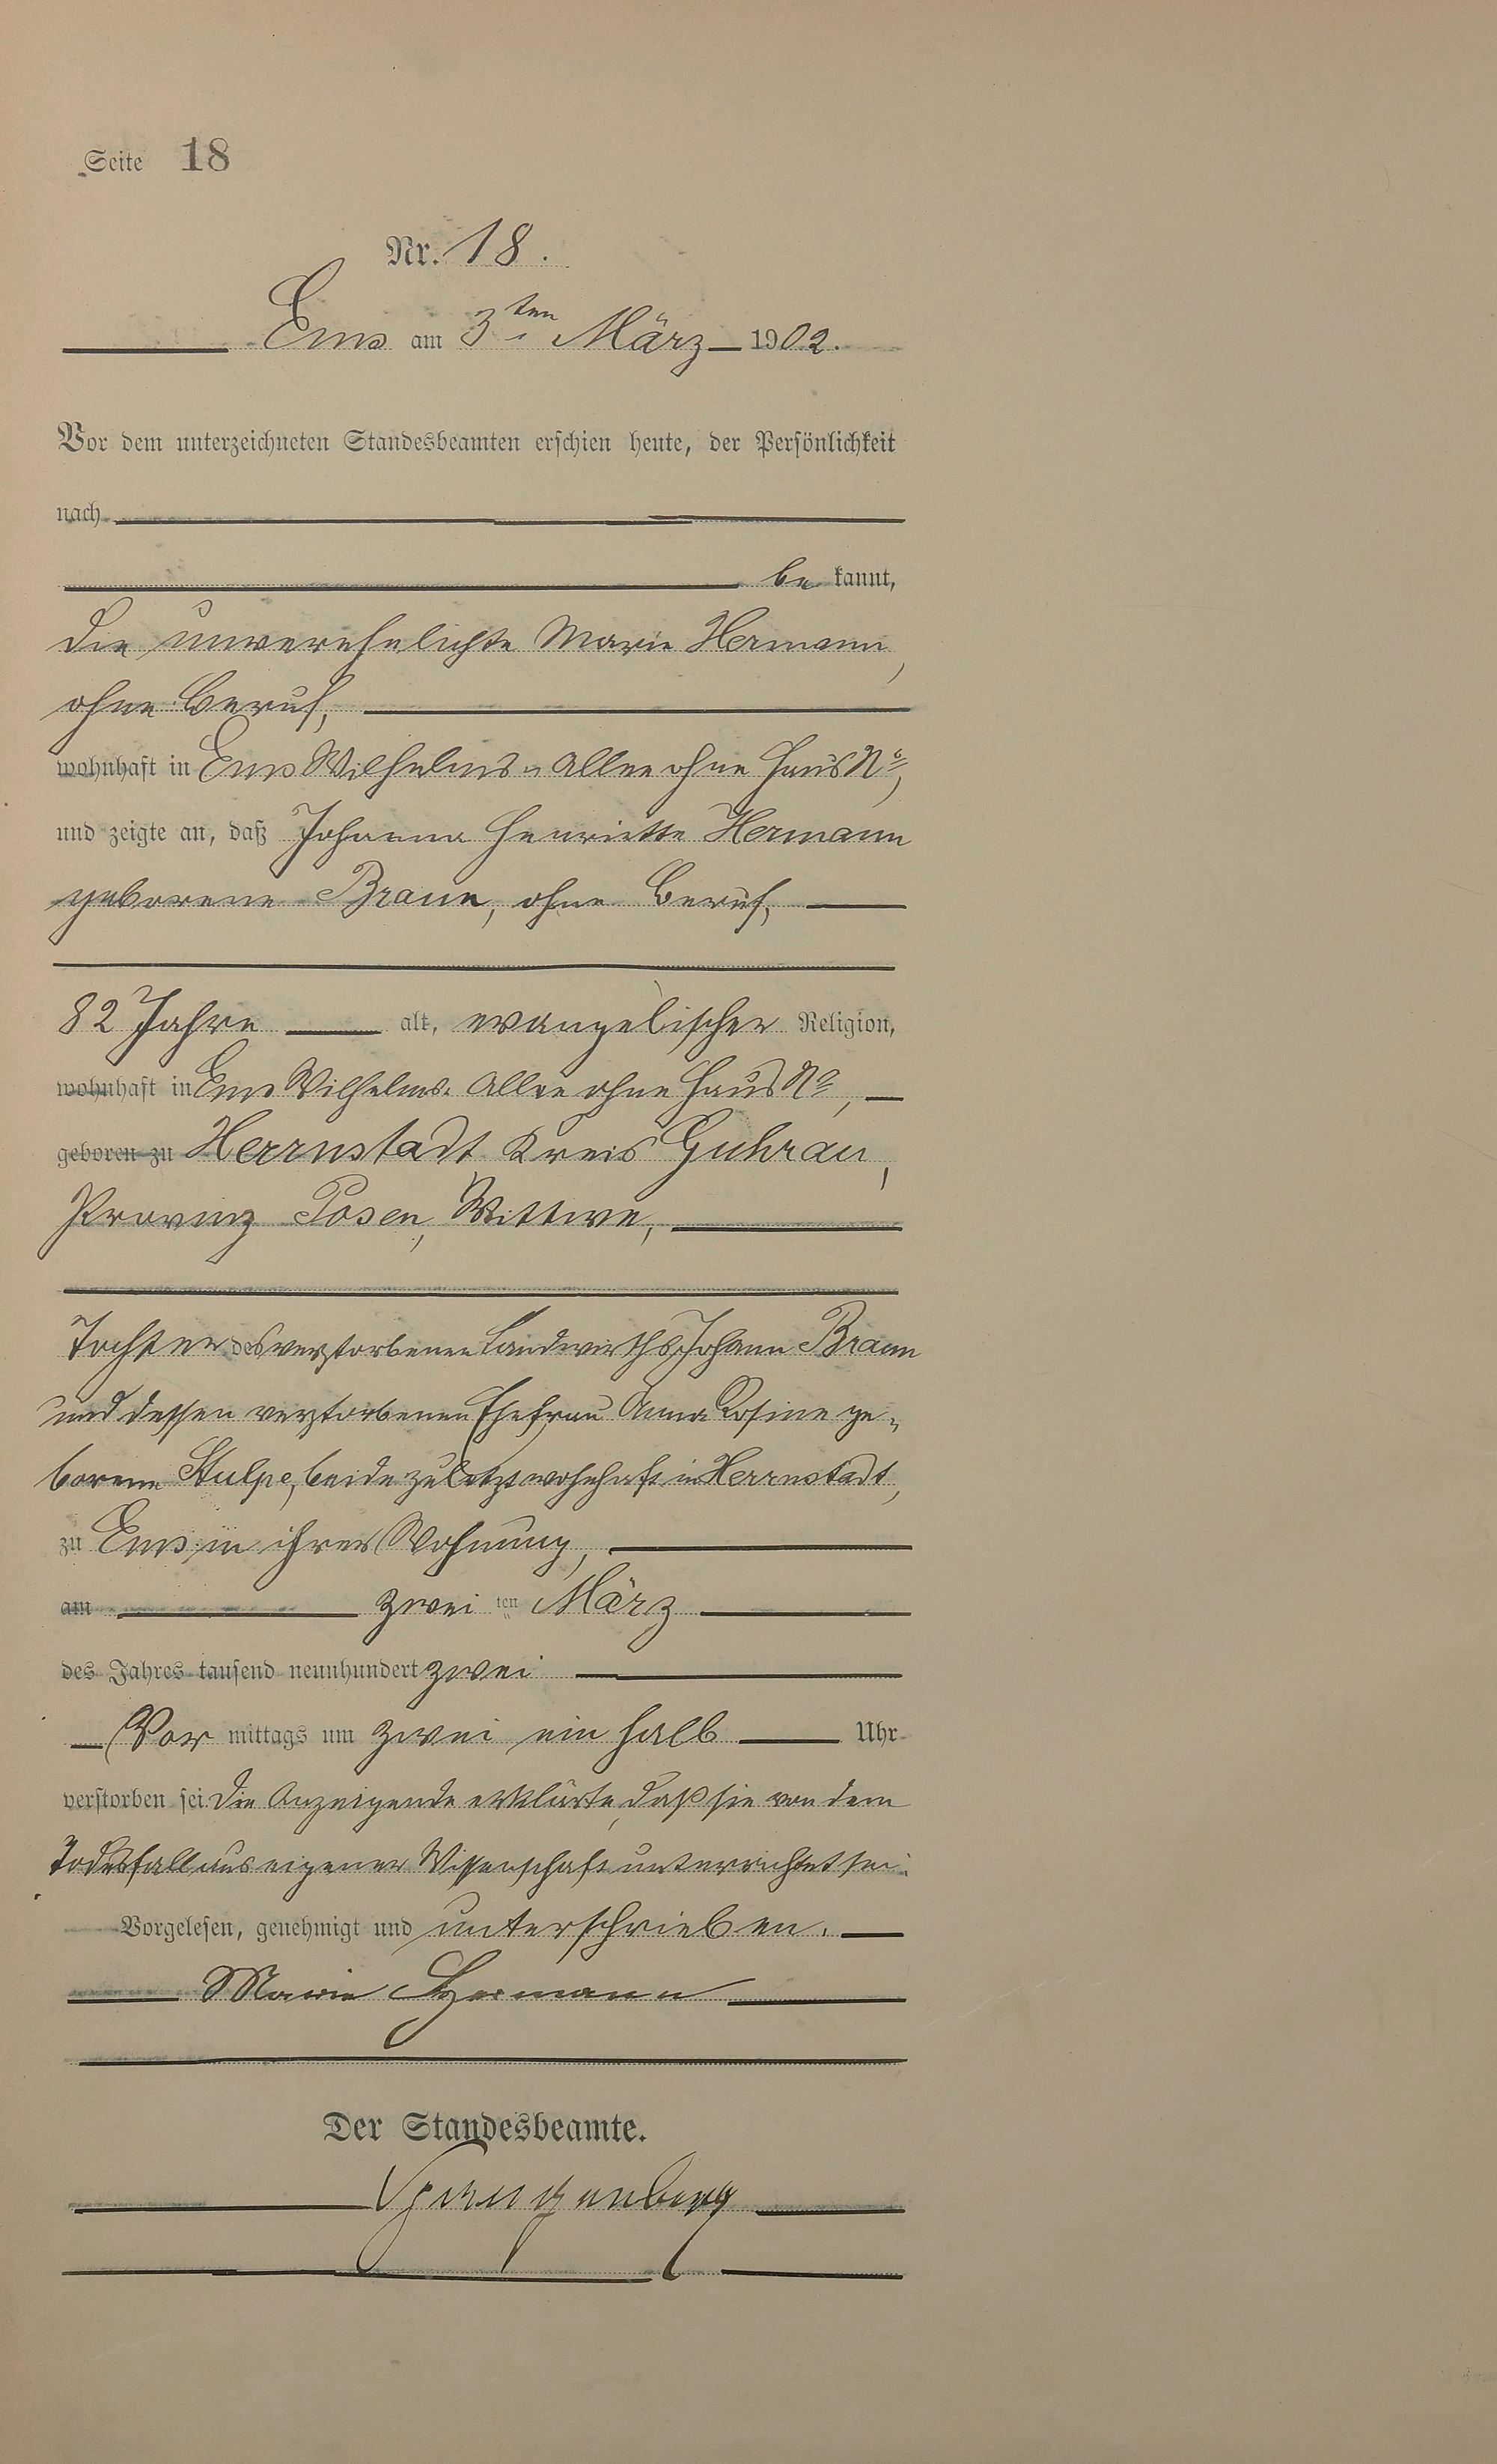 Seite 18
Nr. 18.
Ems am 3ten März 1902.
Vor dem unterzeichneten Standesbeamten erschien heute, der Persönlichkeit
nach
be kannt,
die unverehelichte Marie Hermann,
ohne Beruf,
wohnhaft in Ems Wilhelms-Allee ohne Haus No,
und zeigte an, daß Johanna Henriette Hermann
geborene Braun, ohne Beruf,
82 Jahre alt, evangelischer Religion,
wohnhaft in Ems Wilhelms-Allee ohne Haus No,
geboren zu Herrnstadt Kreis Guhrau,
Provinz Posen, Wittwe,
Tochter des verstorbenen Landwirths Johann Braun
und dessen verstorbenen Ehefrau Anna Rosine ge-
borene Stulpe, beide zuletzt wohnhaft in Herrnstadt,
zu Ems in ihrer Wohnung,
am zwei ten März
des Jahres tausend neunhundert zwei
Vor mittags um zwei ein halb Uhr
verstorben sei. Die Anzeigende erklärte, daß sie von dem
Todesfall aus eigener Wissenschaft unterrichtet sei.
Vorgelesen, genehmigt und unterschrieben.
Marie Hermann
Der Standesbeamte.